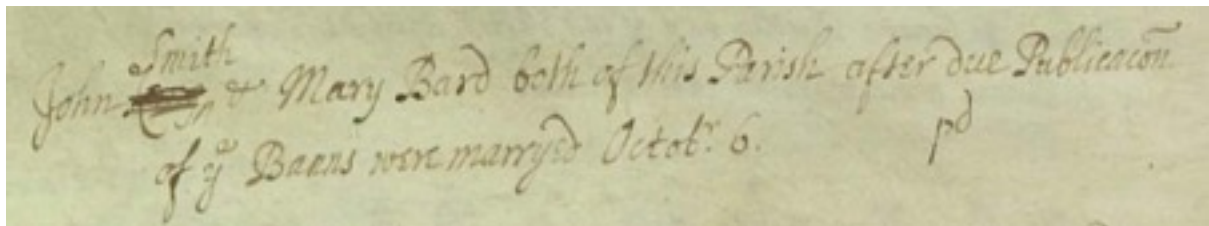 Smith
John & Mary Bard both of this Parish after due Publicacon
of ye Banns were marryed Octobr. 6. pd